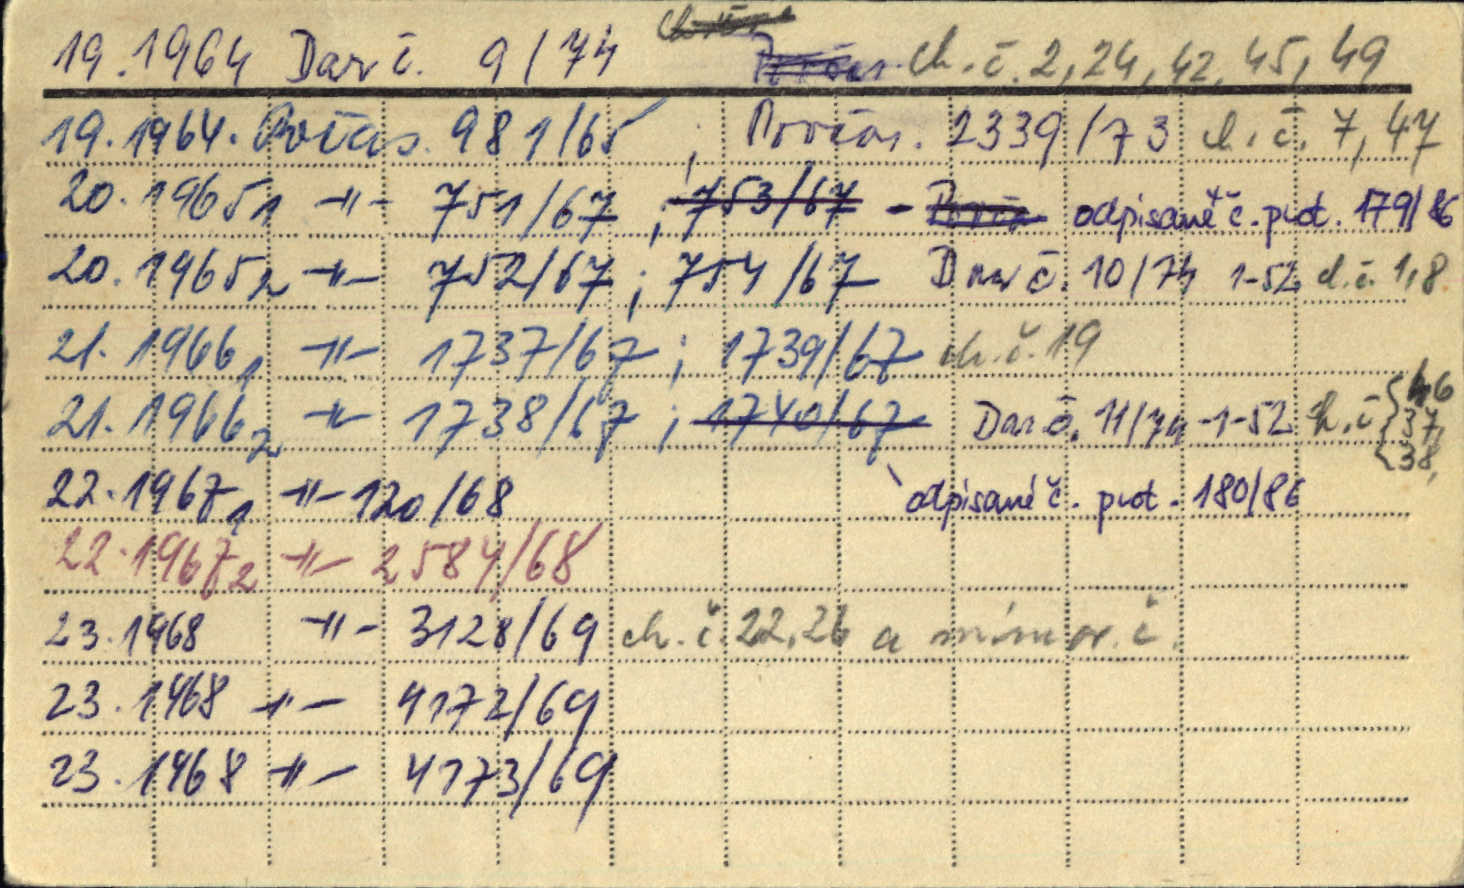 19.1964 Dar č. 9/74 ch.č. 2, 24, 42, 45, 49
19.1964. Počas. 981/65 ; Povčas. 2339/73 ch.č. 7, 47
20.1965₁ -"- 751/67 ; 753/67 - odpísané č. prot. 179/86
20.1965₂ -"- 752/67 ; 754/67 Dar č. 10/74 1-52 ch.č. 1,8.
21.1966₁ -"- 1737/67 ; 1739/67 ch.č. 19
21.1966₂ -"- 1738/67 ; 1740/67 Dar č. 11/74 -1-52 ch.č { 46
37,
38,
22.1967₁ -"- 120/68 odpísané č. prot. 180/86
22.1967₂ -"- 2584/68
23.1968 -"- 3128/69 ch.č. 22, 26 a mimor.č.
23.1968 -"- 4172/69
23.1968 -"- 4173/69